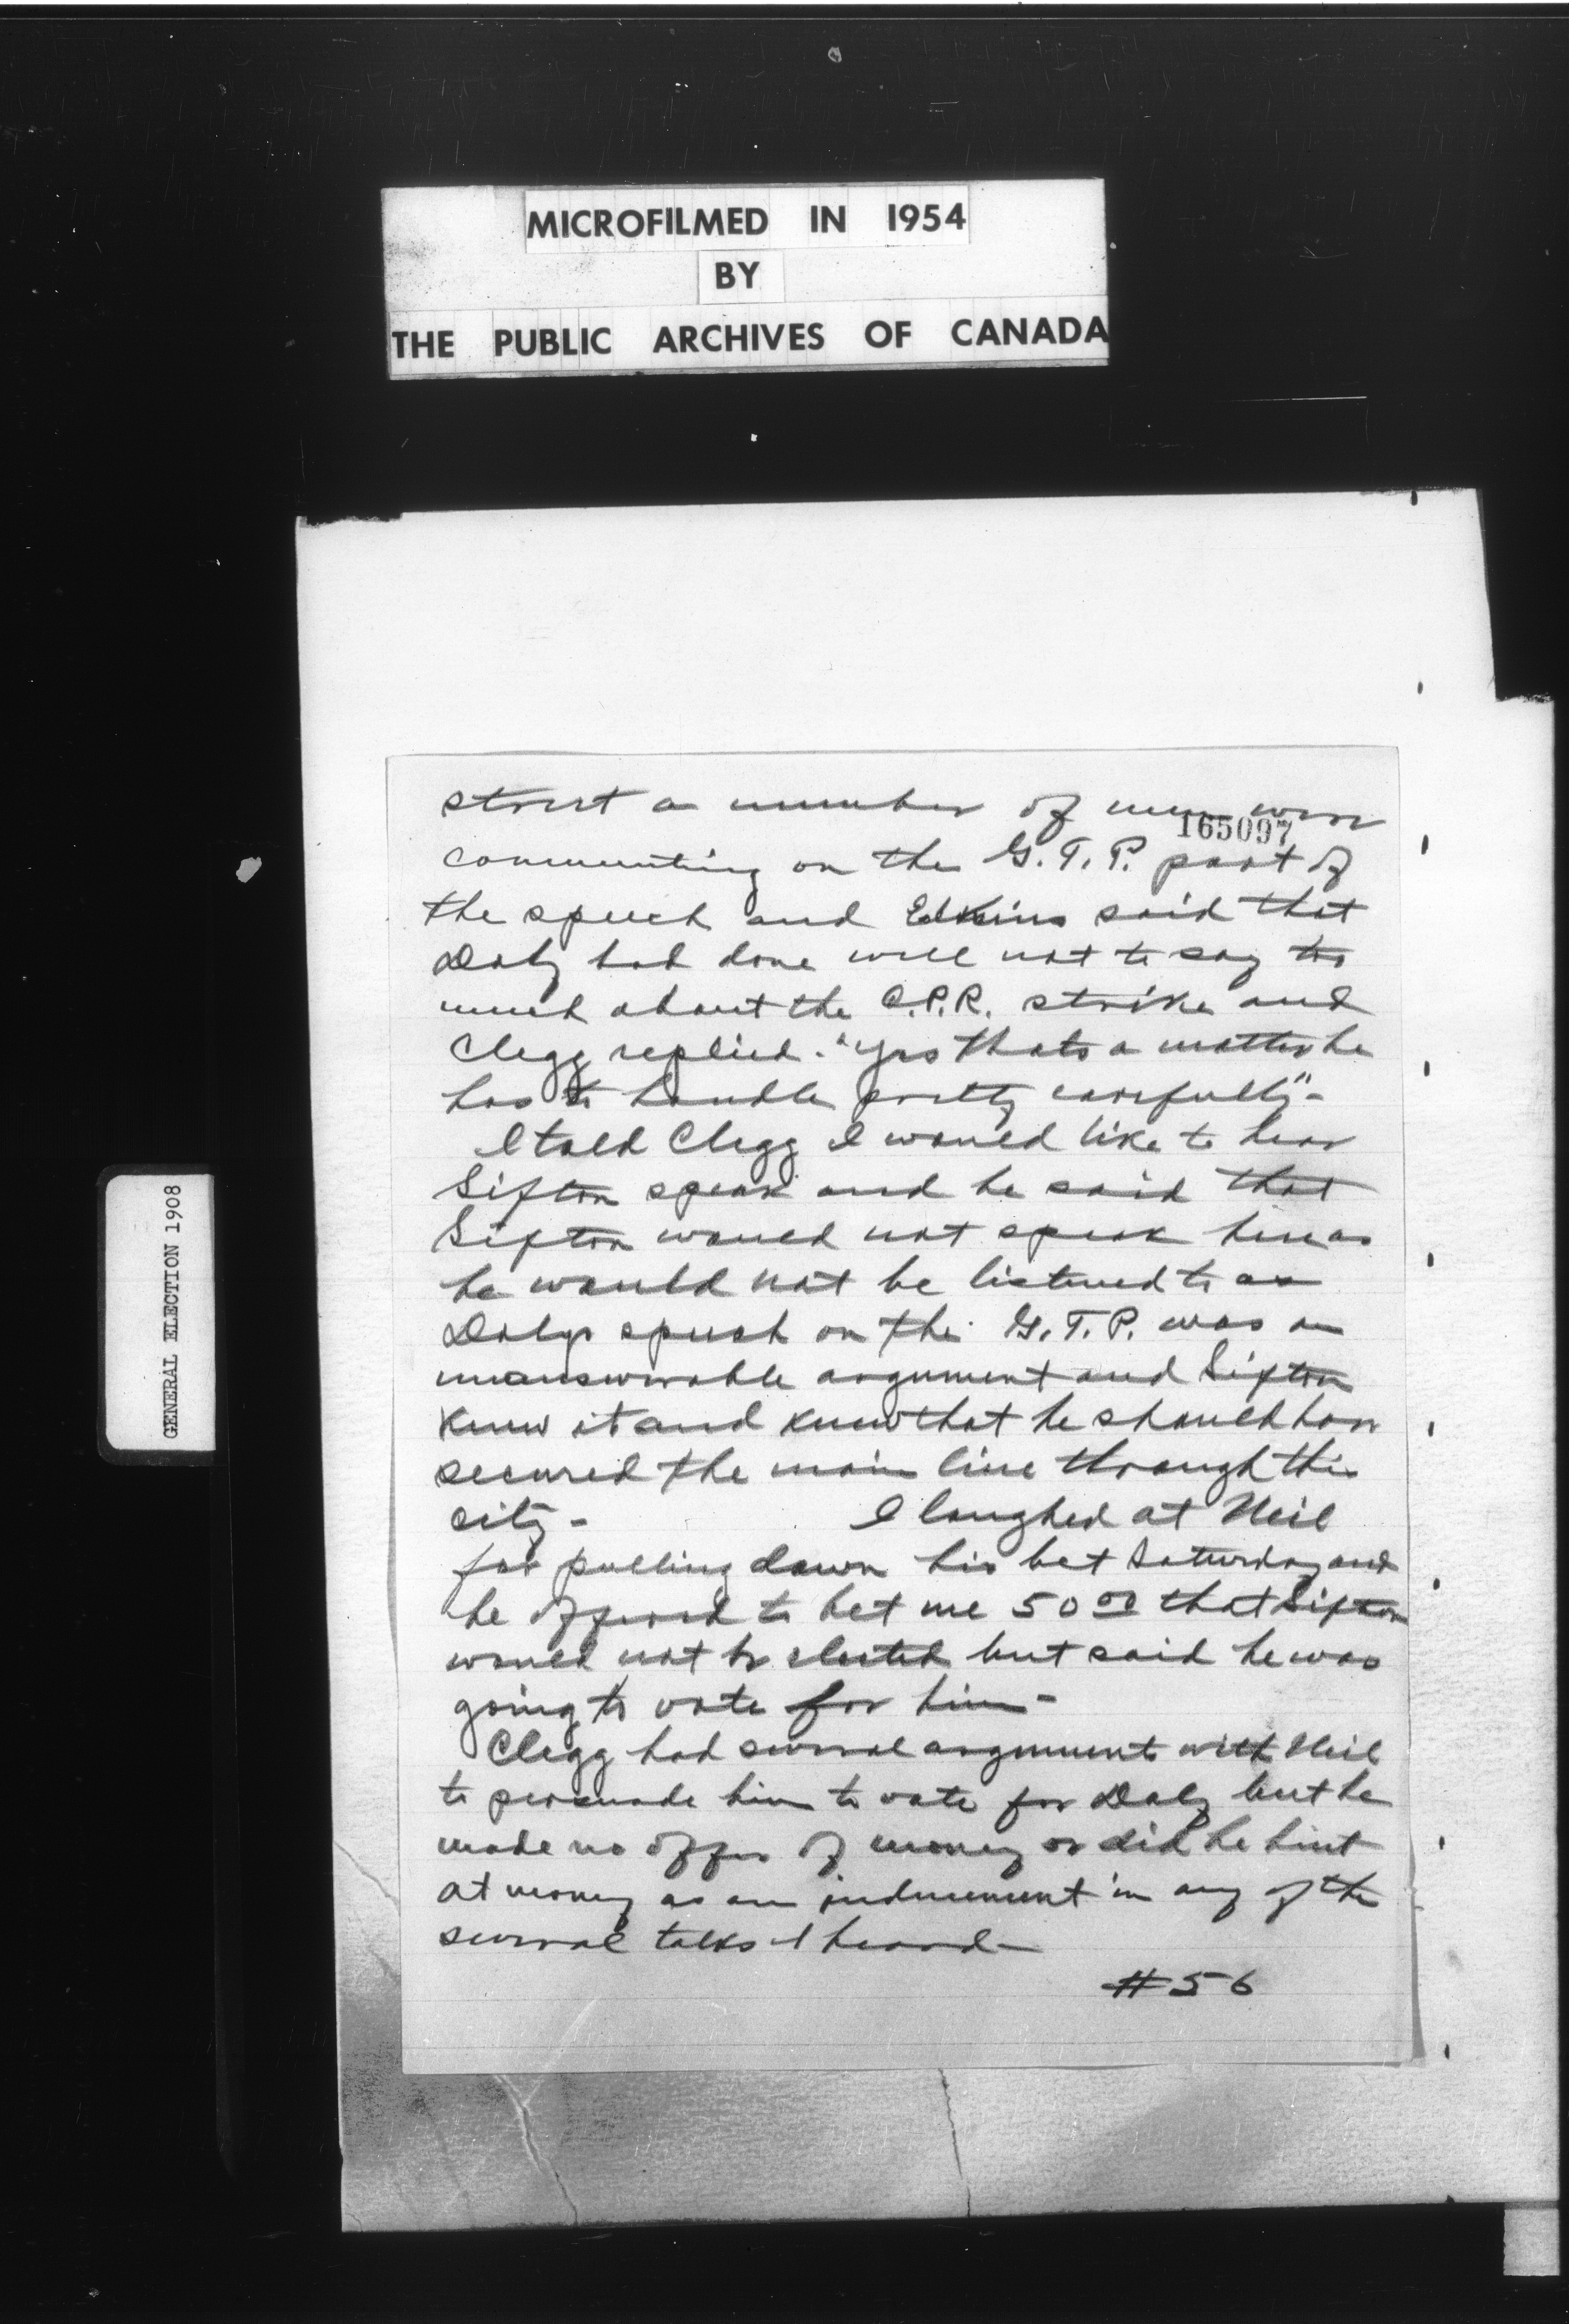 MICROFILMED IN 1954
BY
THE PUBLIC ARCHIVES OF CANADA
GENERAL ELECTION 1908
165097
street a number of men were
commenting on the G.T.P. part of
the speech and Edkins said that
Daly had done well not to say too
much about the C.P.R. strike and
Clegg replied. "Yes thats a matter he
has to handle pretty carefully" -
I told Clegg I would like to hear
Sifton speak and he said that
Sifton would not speak here as
he would not be listened to as
Dalys speech on the G.T.P. was an
unanswerable argument and Sifton
knew it and knew that he should have
secured the main line through this
city - I laughed at Neil
for pulling down his bet Saturday and
he offered to bet me 50 00 that Sifton
would not be elected but said he was
going to vote for him -
Clegg had several arguments with Neil
to persuade him to vote for Daly but he
made no offer of money or did he hint
at money as an inducement in any of the
several talks I heard -
#56